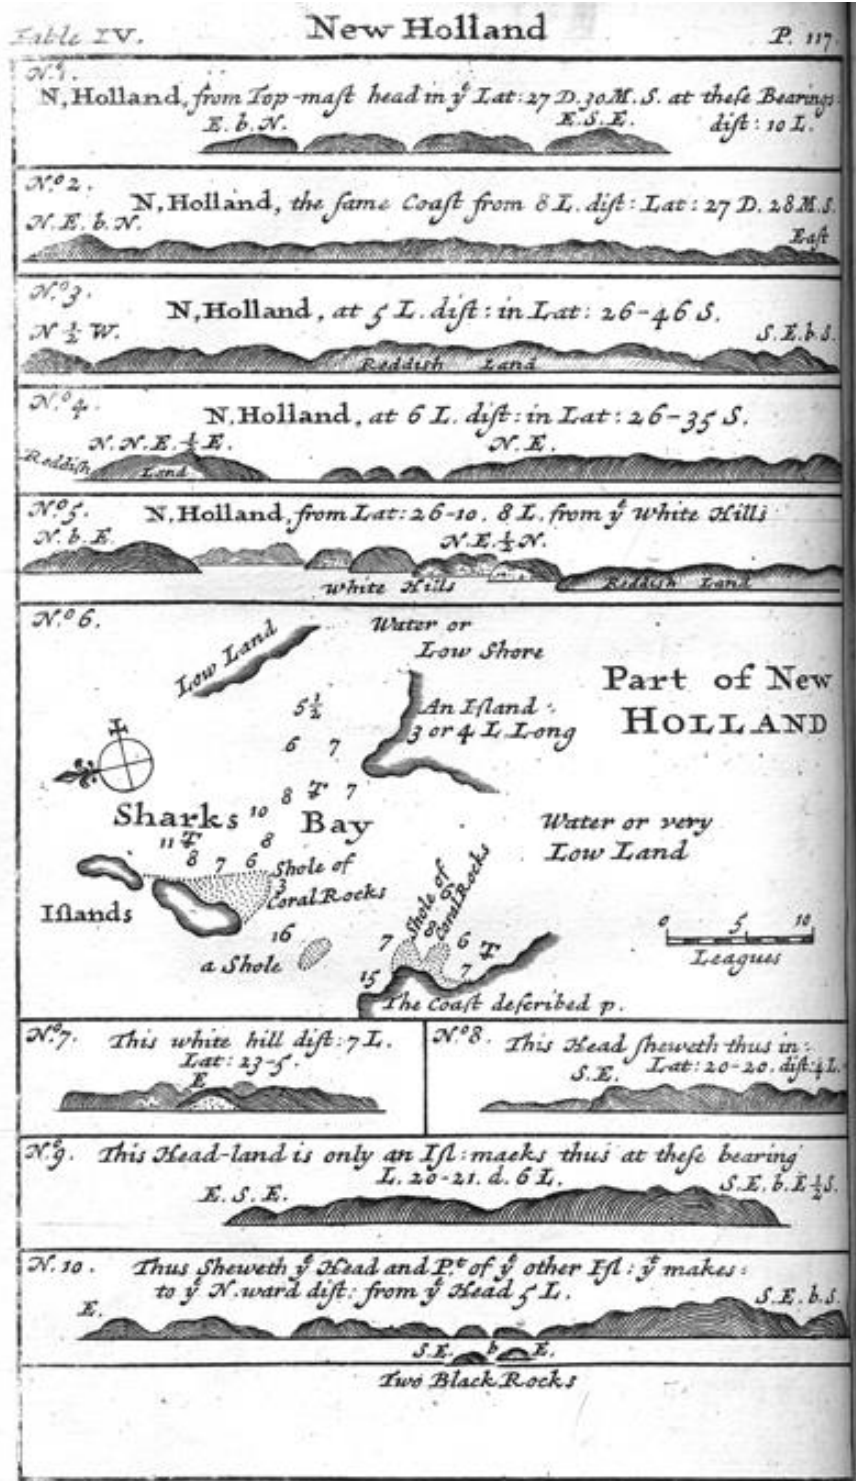 Table IV. New Holland P. 117.
N.º 1.
N, Holland, from Top-maſt head in yᵉ Lat: 27 D. 30 M. S. at theſe Bearings
E. b. N. E. S. E. diſt: 10 L.
N.º 2.
N, Holland, the ſame Coaſt from 8 L. diſt: Lat: 27 D. 28 M. S.
N. E. b. N. Eaſt
N.º 3.
N, Holland, at 5 L. diſt: in Lat: 26-46 S.
N ½ W. S. E. b. S.
Reddish Land
N.º 4.
N. Holland, at 6 L. diſt: in Lat: 26-35 S.
N. N. E. ½ E. N. E.
Reddish Land
N.º 5. N, Holland, from Lat: 26-10. 8 L. from yᵉ White Hills
N. b. E. N. E. ½ N.
White Hills Reddish Land
N.º 6.
Low Land
Water or
Low Shore
Part of New
HOLLAND
5 ½
An Iſland
3 or 4 L Long
6 7
8 7
Sharks 10 Bay
Water or very
Low Land
11
8
8 7 6 Shole of
3
Coral Rocks
Iſlands
Shole of
Coral Rocks
8 6
16
a Shole
7 6
15 7
0 5 10
Leagues
The Coaſt deſcribed p.
N.º 7. This white hill diſt: 7 L.
Lat: 23-5.
E
N.º 8. This Head ſheweth thus in
S. E. Lat: 20-20. diſt: 4 L.
N.º 9. This Head-land is only an Iſl: maeks thus at theſe bearing
L. 20-21. d. 6 L.
E. S. E. S. E. b. E ½ S.
N. 10. Thus Sheweth yᵉ Head and P.ᵗ of yᵉ other Iſl: yᵗ makes:
to yᵉ N.ward diſt: from yᵉ Head 5 L.
E. S. E. b. S.
S. E. b E.
Two Black Rocks